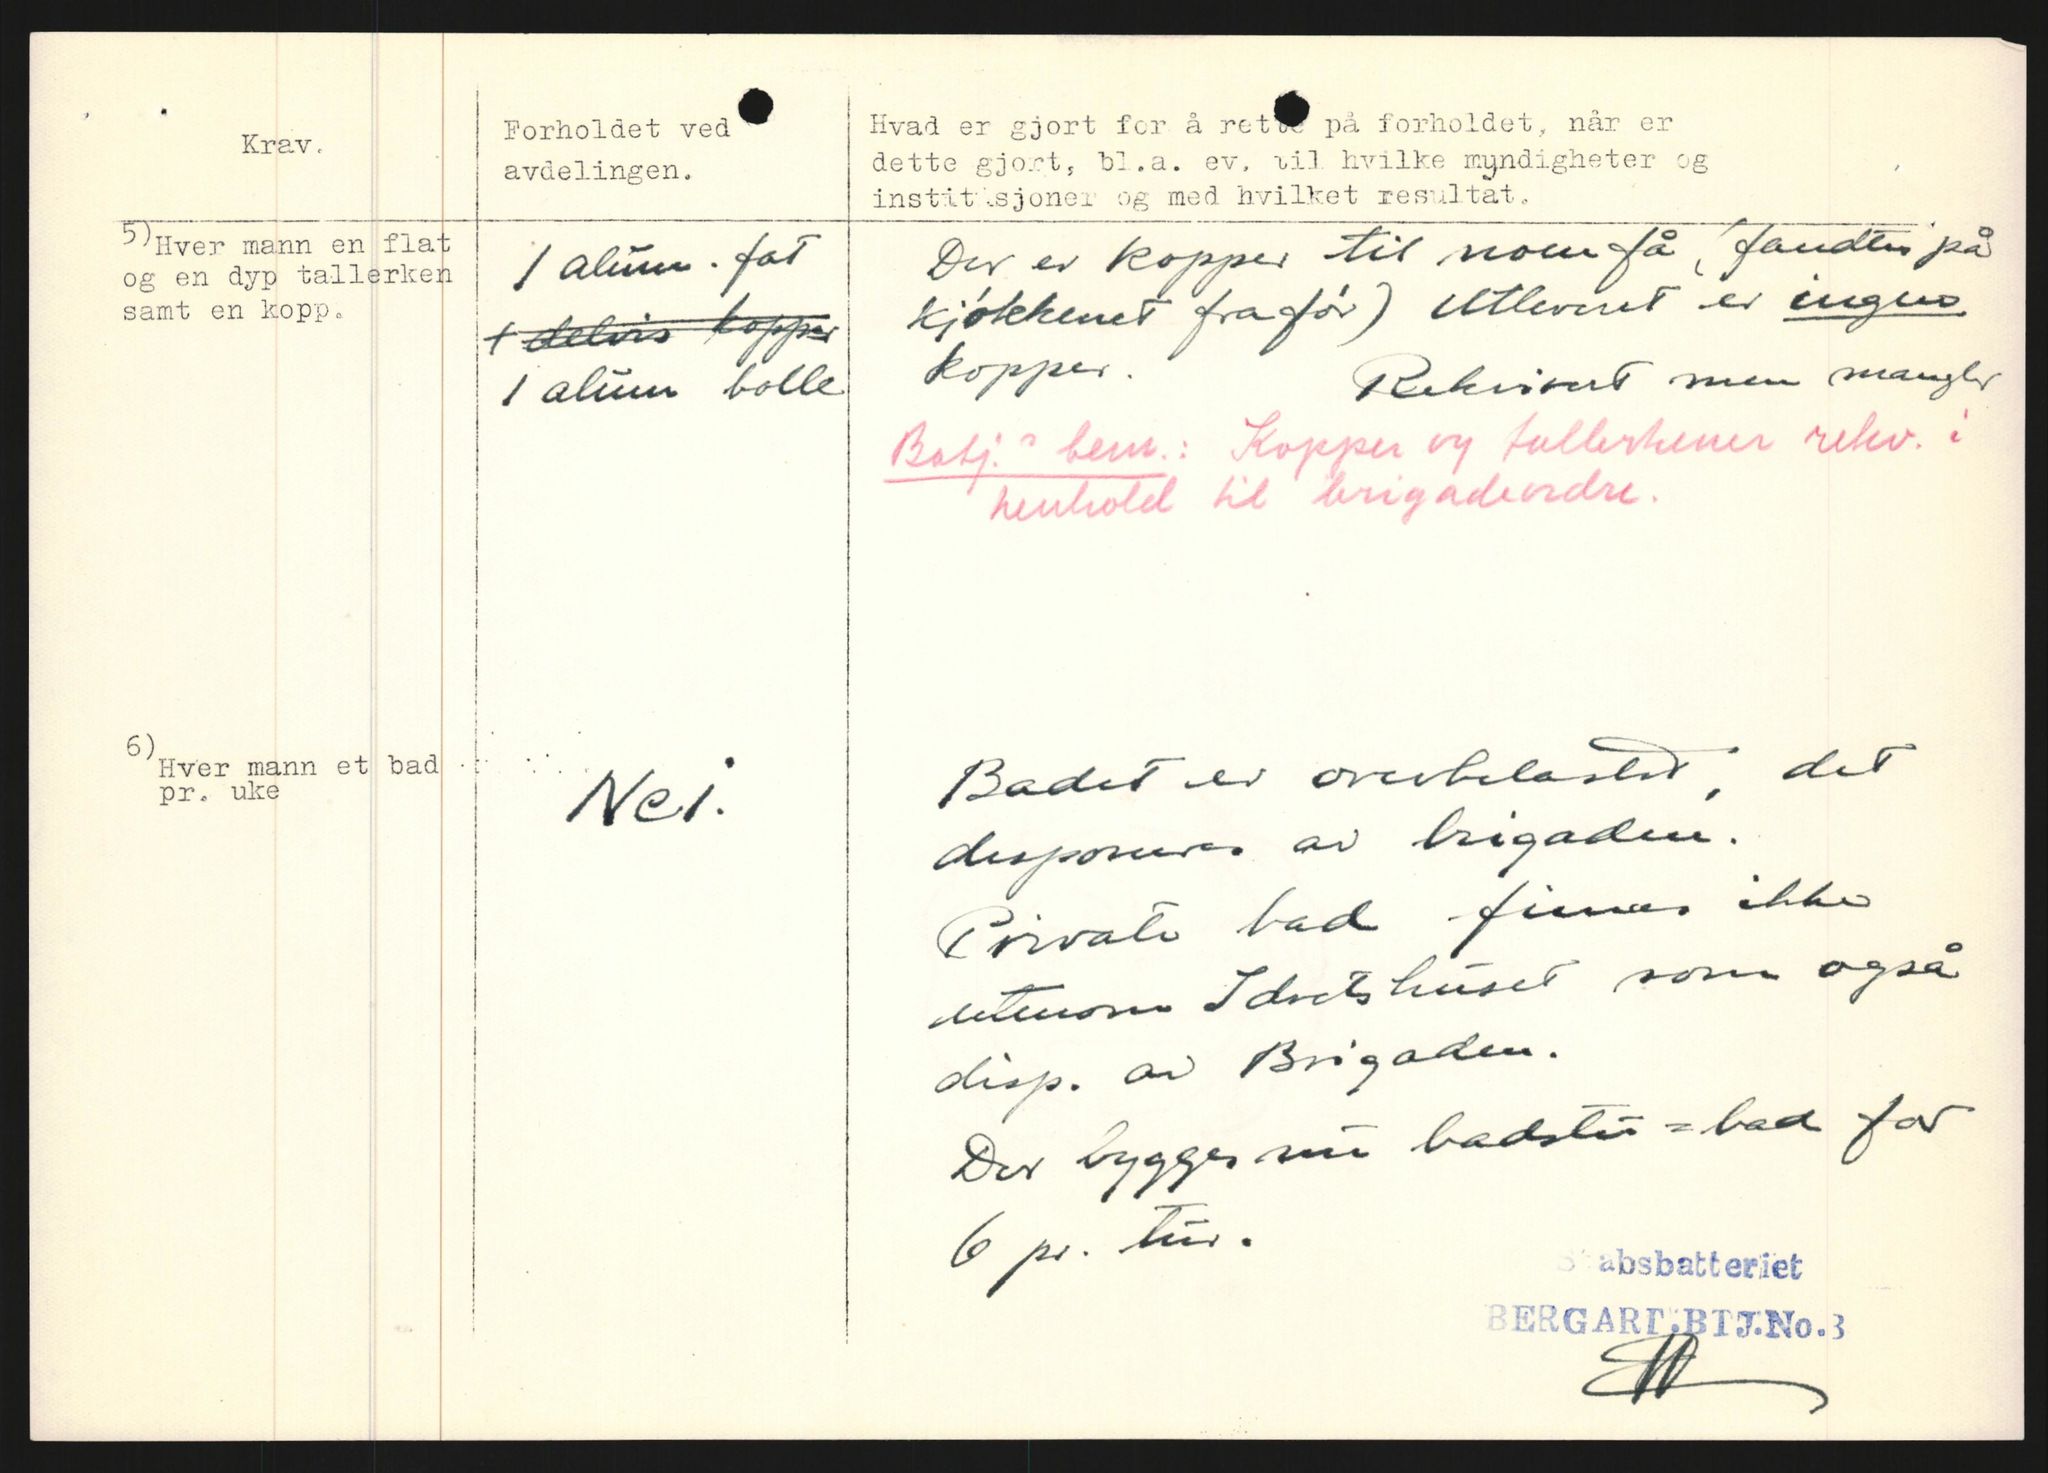 Krav.
Forholdet ved
avdelingen.
Hvad er gjort for å rette på forholdet, når er
dette gjort, bl.a. ev. til hvilke myndigheter og
institusjoner og med hvilket resultat.
5) Hver mann en flat
og en dyp tallerken
samt en kopp.
1 alum. fat
+ delvis kopper
1 alum bolle
Der er kopper til noen få, (fandtes på
kjøkkenet fra før) Utleveret er ingen
kopper. Rekvirert men mangler
Batj.s bem.: Kopper og tallerkener rekv. i
henhold til brigadeordre.
6)
Hver mann et bad
pr. uke
Nei.
Badet er overbelastet, det
disponeres av brigaden.
Private bad finnes ikke
utenom Idrætshuset som også
disp. av Brigaden.
Der bygges nu badstu=bad for
6 pr. tur.
Stabsbatteriet
BERGART.BTJ.No.3